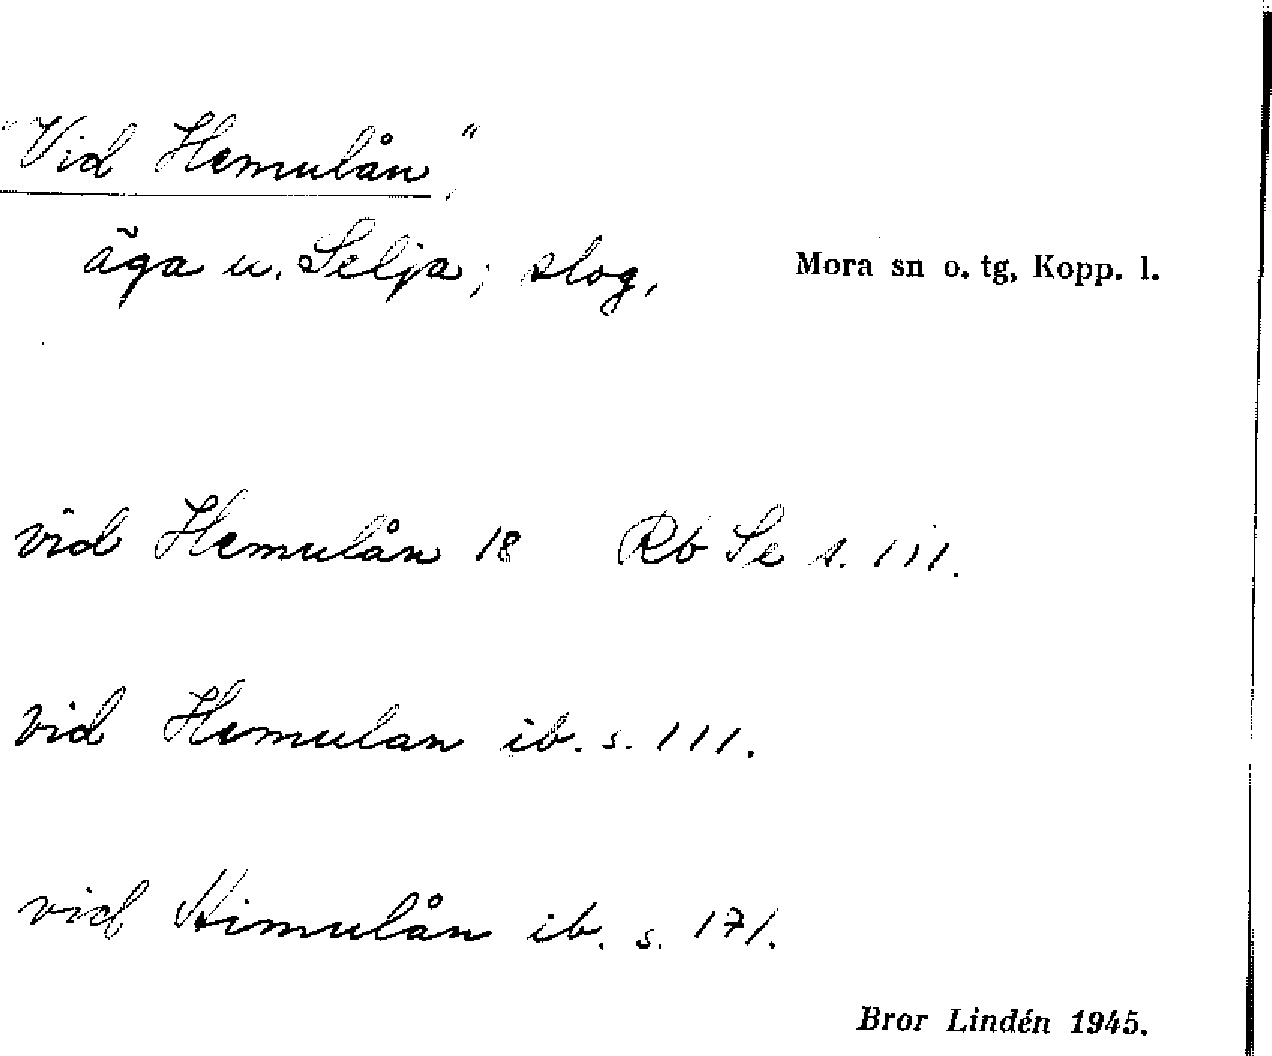 "Vid Hemulån",
äga u. Selja; slog, Mora sn o. tg, Kopp. l.
vid Hemulån 18 Rb Se s. 111.
vid Hemulan ib. s. 111.
vid Himulån ib. s. 171.
Bror Lindén 1945.